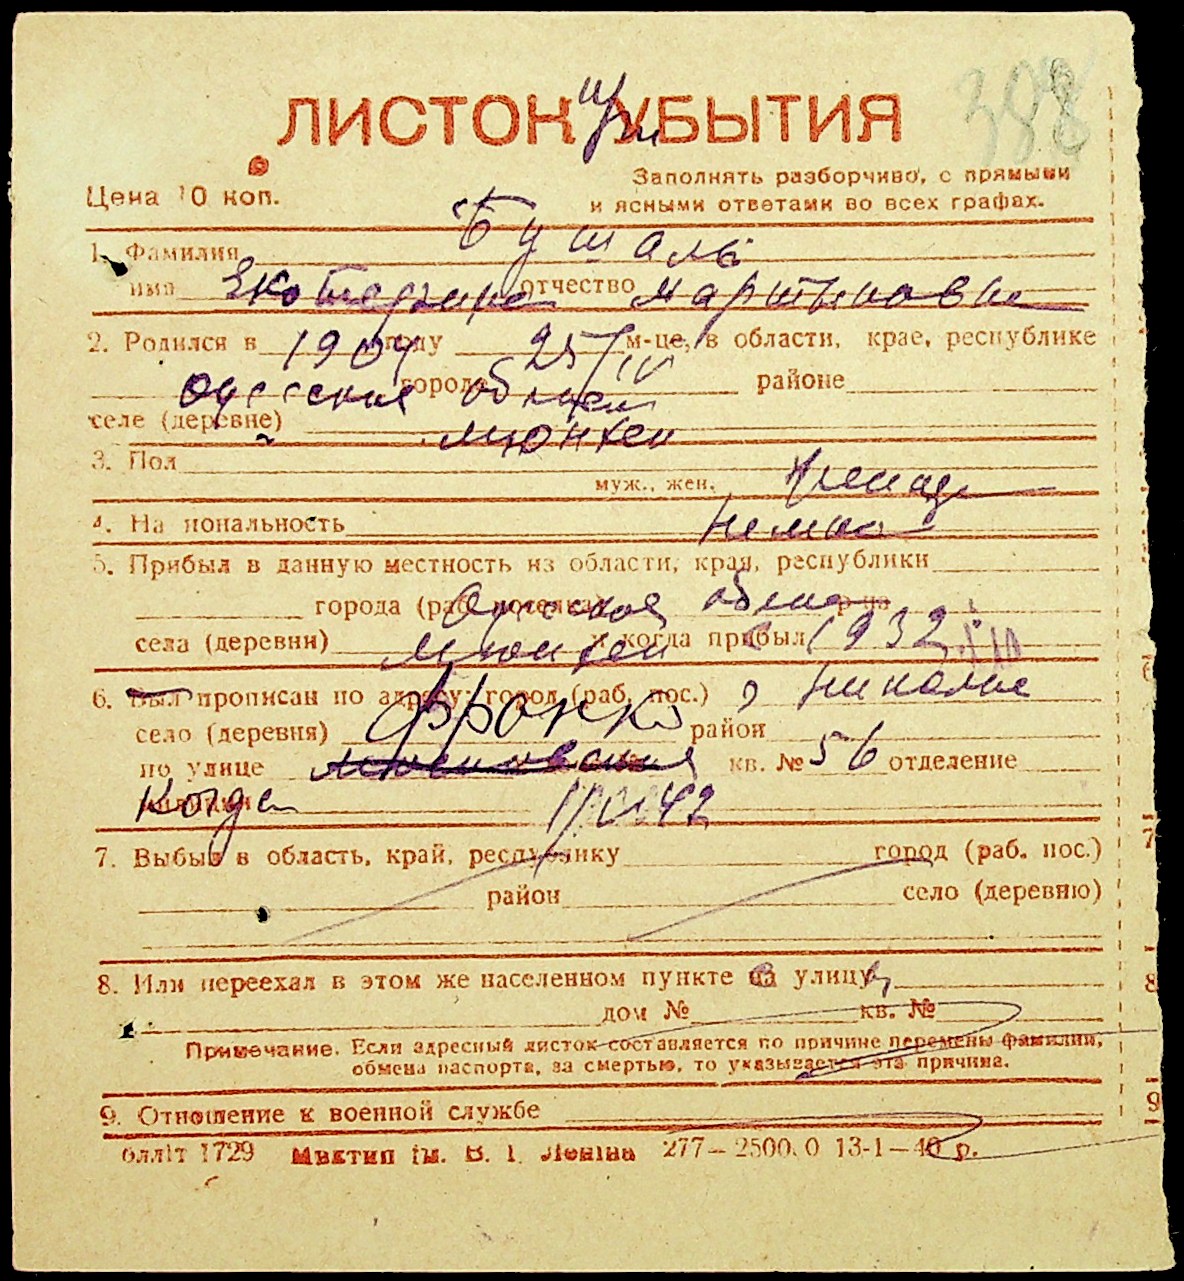 398
ЛИСТОК УБЫТИЯ
при
Цена 10 коп.
Заполнять разборчиво, с прямыми
и ясными ответами во всех графах.
1. Фамилия Бушаль
имя Екатерина отчество Мартиновна
2. Родился в 1904 году 25/IV м-це, в области, крае, республике
Одесская города област районе
селе (деревне) Мюнхен
3. Пол муж., жен. Женщ
4. На иональность Немка
5. Прибыл в данную местность из области, края, республики
города (раб. поселка) Одесская област р-на
села (деревни) Мюнхен и когда прибыл 1932
6. Был прописан по адресу: город (раб. пос.) г Николае
село (деревня) Франко район
по улице кв. № 56 отделение
милиции Когда 1/IV 42
7. Выбыл в область, край, республику город (раб. пос.)
район село (деревню)
8. Или переехал в этом же населенном пункте на улицу
дом № кв. №
Примечание. Если адресный листок составляется по причине перемены фамилии,
обмена паспорта, за смертью, то указывается эта причина.
9. Отношение к военной службе
блліт 1729 Миктип ім. В. І. Леніна 277—2500.0 13-1—40 р.
7
8
9